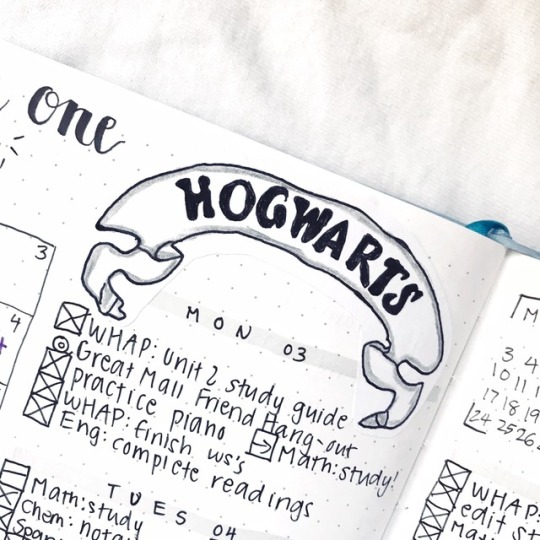 one
HOGWARTS
MON 03
WHAP: unit 2 study guide
Great Mall Friend Hang-out
practice piano
Math: study!
WHAP: finish ws's
Eng: complete readings
TUES 04
Math: study
Chem:
3
4
M
3 4
10 11 1
17 18 19
24 25 26
WHAP:
edit